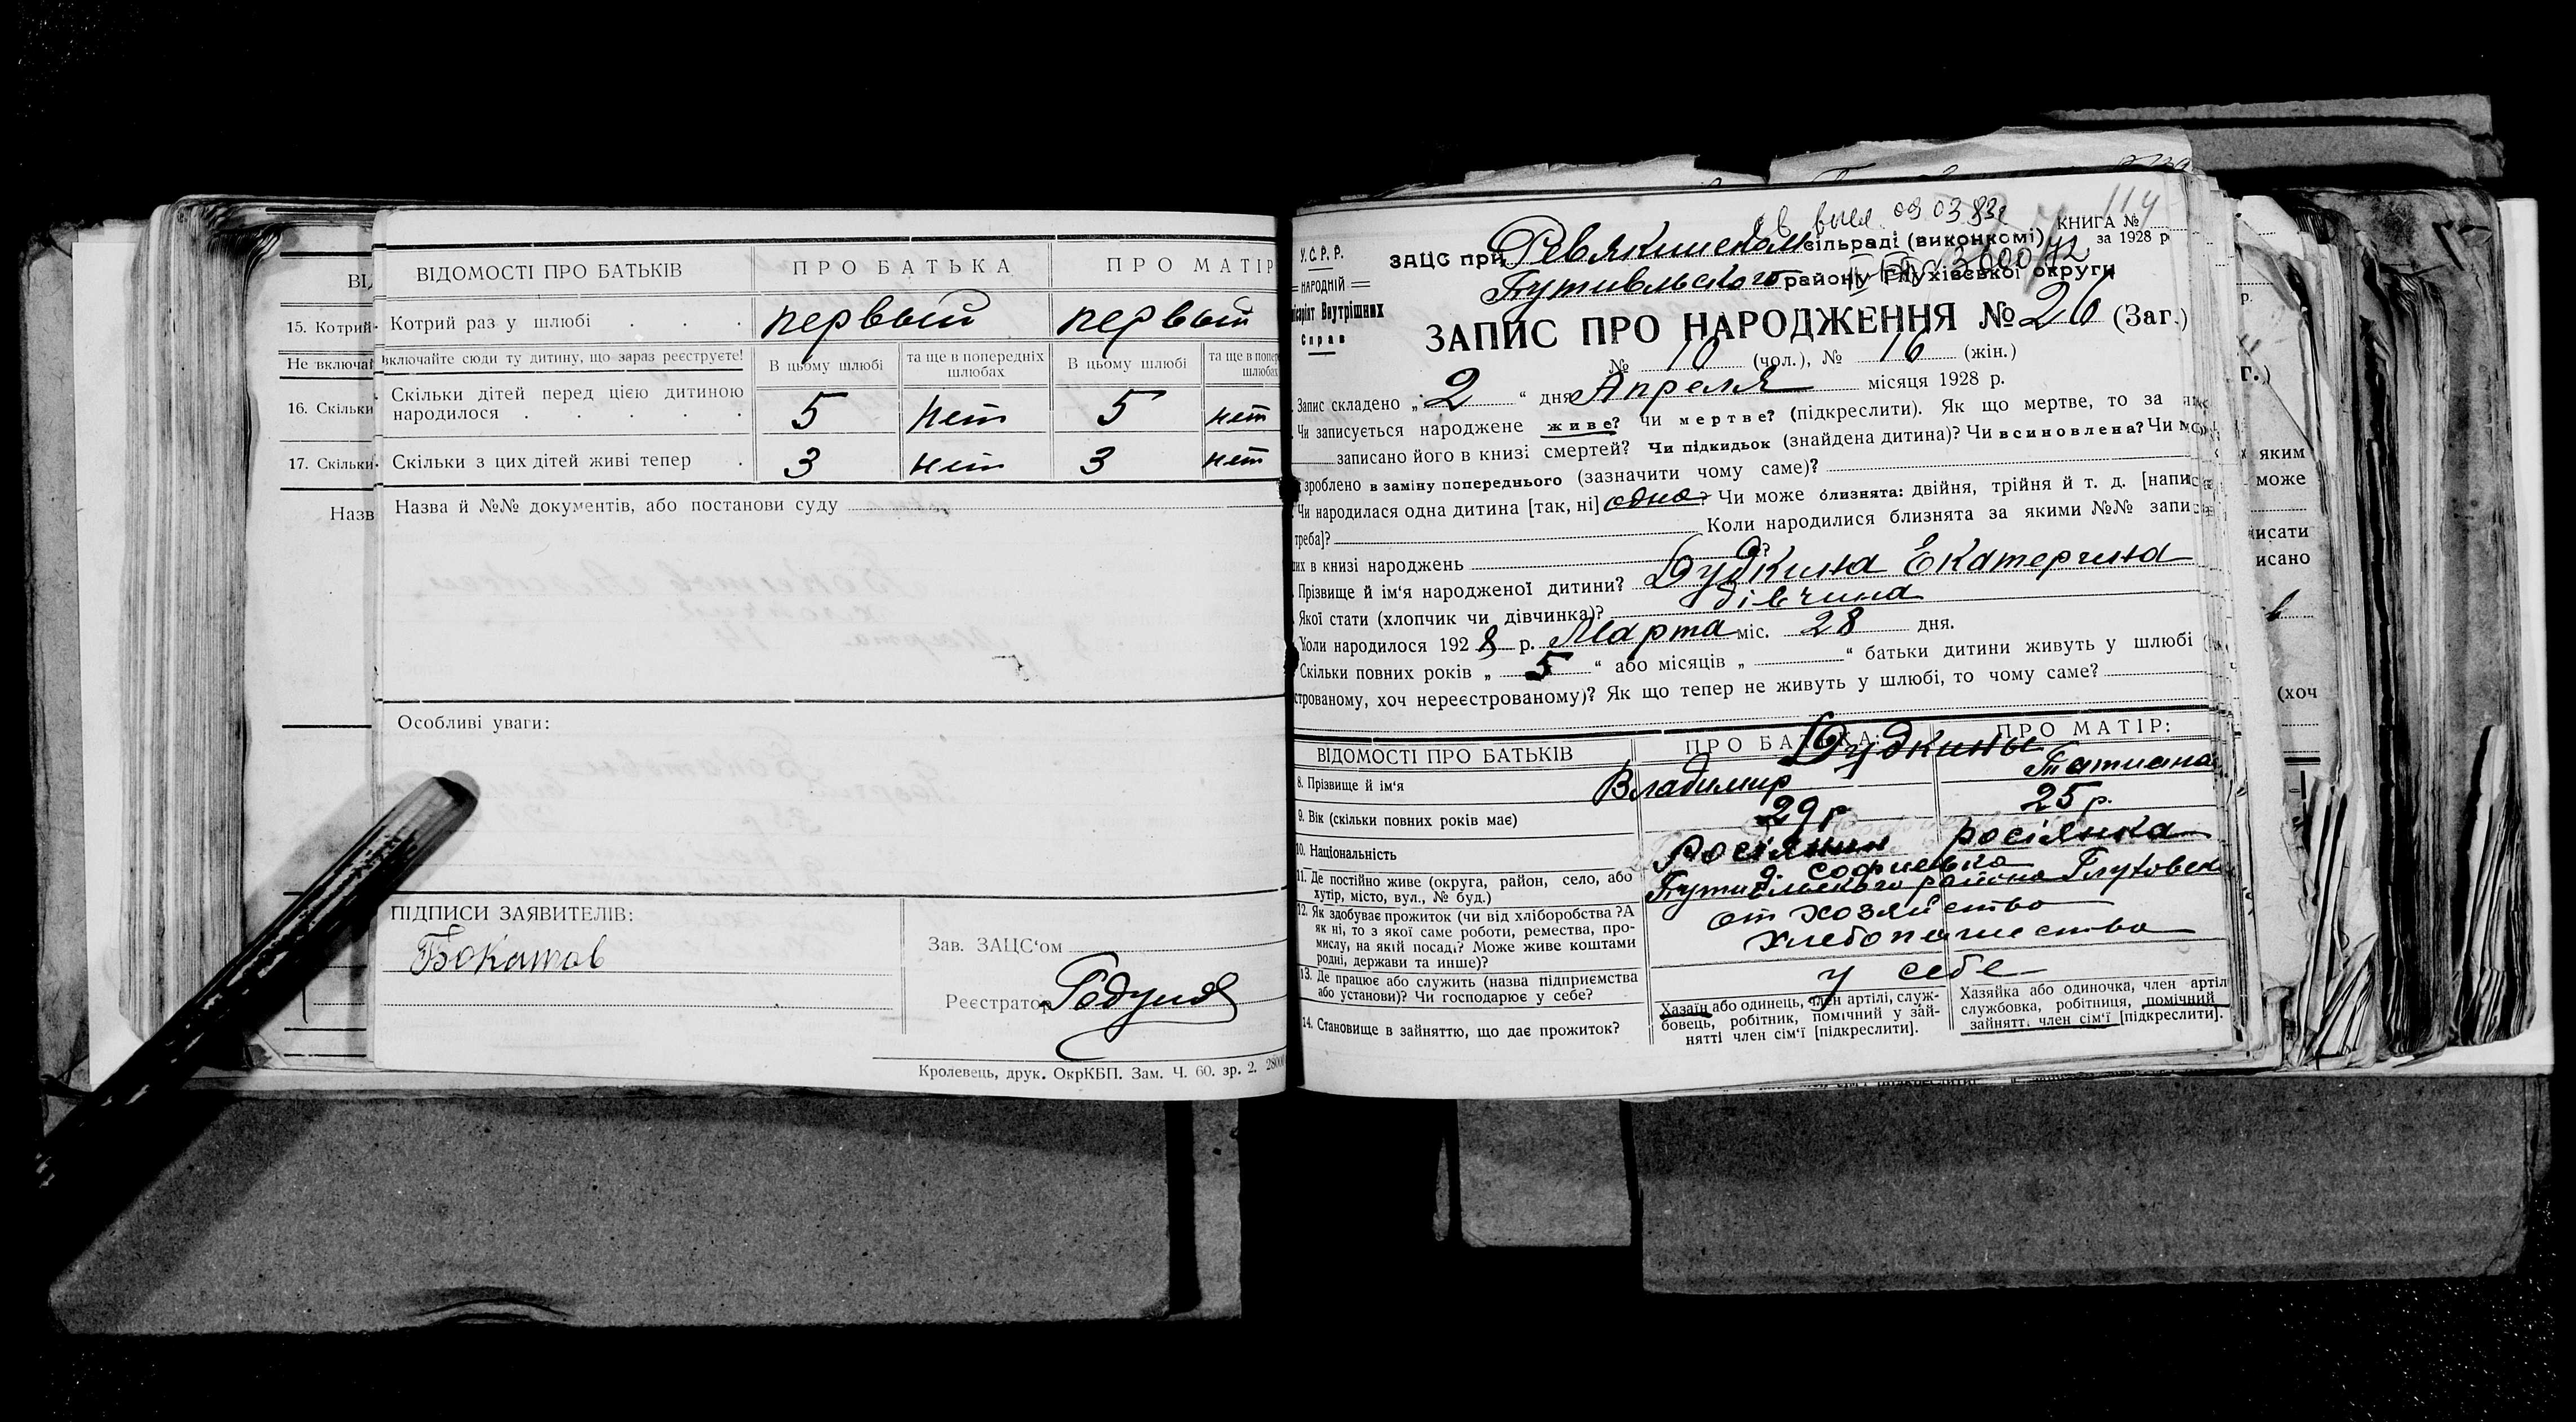 ВІДОМОСТІ ПРО БАТЬКІВ
ПРО БАТЬКА
ПРО МАТІР
15. Котрий
Котрий раз у шлюбі . . .
первый
первый
Не включай
включайте сюди ту дитину, що зараз реєструєте!
В цьому шлюбі
та ще в попередніх шлюбах
В цьому шлюбі
та ще в попер
шлюбах
16. Скільки
Скільки дітей перед цією дитиною
народилося . . . . .
5
нет
5
нет
17. Скільки
Скільки з цих дітей живі тепер .
3
нет
3
нет
Назв
Назва й №№ документів, або постанови суду
Особливі уваги:
ПІДПИСИ ЗАЯВИТЕЛІВ:
Бокатов
Зав. ЗАЦС'ом
Реєстратор
Кролевець, друк. ОкрКБП. Зам. Ч. 60. зр. 2. 28000
114
выея. 09 03 83г
КНИГА №
У.С.Р.Р.
НАРОДНІЙ
Внутрішних
Справ
ЗАЦС при Ревякинском сільраді (виконкомі)
за 1928 р
Путивльского району Глухівської округи
ЗАПИС ПРО НАРОДЖЕННЯ № 26 (Заг.)
№ 10 (чол.), № 16 (жін.)
Запис складено „ 2 “ дня Апреля місяця 1928 р.
Чи записується народжене живе? чи мертве? (підкреслити). Як що мертве, то за
записано його в книзі смертей? Чи підкидьок (знайдена дитина)? Чи всиновлена? Чи
зроблено в заміну попереднього (зазначити чому саме)?
Чи народилася одна дитина [так, ні] одна? Чи може близнята: двійня, трійня й т. д. [напис
треба]? Коли народилися близнята за якими №№ запис
них в книзі народжень ?
Прізвище й ім'я народженої дитини? Дудкина Екатерина
Якої стати (хлопчик чи дівчинка)? дівчина
Коли народилось 1928 р. Марта міс. 28 дня.
Скільки повних років „ 5 “ або місяців „ “ батьки дитини живуть у шлюбі (
строваному, хоч нереєстрованому)? Як що тепер не живуть у шлюбі, то чому саме?
ВІДОМОСТІ ПРО БАТЬКІВ
ПРО БАТЬКА:
ПРО МАТІР:
Дудкины
8. Прізвище й ім'я
Владимир
Татиана
9. Вік (скільки повних років має)
29 р
25 р.
10. Національність
Росіянин
росіянка
11. Де постійно живе (округа, район, село, або
хутір, місто, вул., № буд.)
д. Софиевка
Путивльского района Глуховск
12. Як здобуває прожиток (чи від хліборобства? А
як ні, то з якої саме роботи, ремества, про-
мислу, на якій посаді? Може живе коштами
родні, держави та инше)?
от хозяйство
хлебопашество
13. Де працює або служить (назва підприємства
або установи)? Чи господарює у себе?
у себе
14. Становище в зайняттю, що дає прожиток?
Хазаїн або одинець, член артілі, служ-
бовець, робітник, помічний у зай-
нятті член сім'ї [підкреслити].
Хазяйка або одиночка, член артіл
службовка, робітниця, помічний
зайнятт. член сім'ї [підкреслити].
яким
може
исати
исано
(хоч